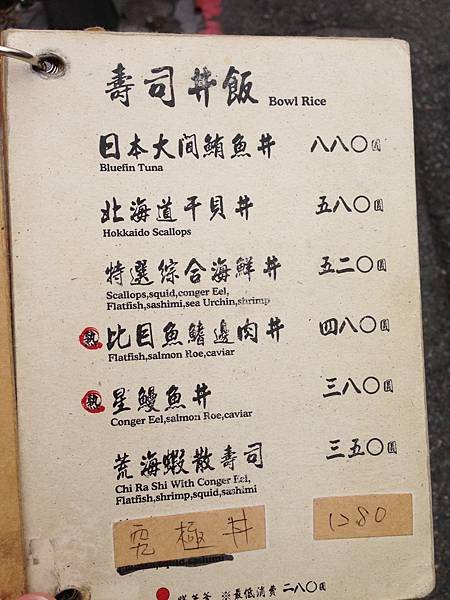 壽司丼飯 Bowl Rice
日本大间鮪魚丼 八八〇圓
Bluefin Tuna
北海道干貝丼 五八〇圓
Hokkaido Scallops
特選綜合海鮮丼 五二〇圓
Scallops,squid,conger Eel,
Flatfish,sashimi,sea Urchin,shrimp
熟 比目魚鰭邊肉丼 四八〇圓
Flatfish,salmon Roe,caviar
熟 星鰻魚丼 三八〇圓
Conger Eel,salmon Roe,caviar
荒海蝦散壽司 三五〇圓
Chi Ra Shi With Conger Eel,
Flatfish,shrimp,squid,sashimi
究極丼 1280
※最低消費二八〇圓